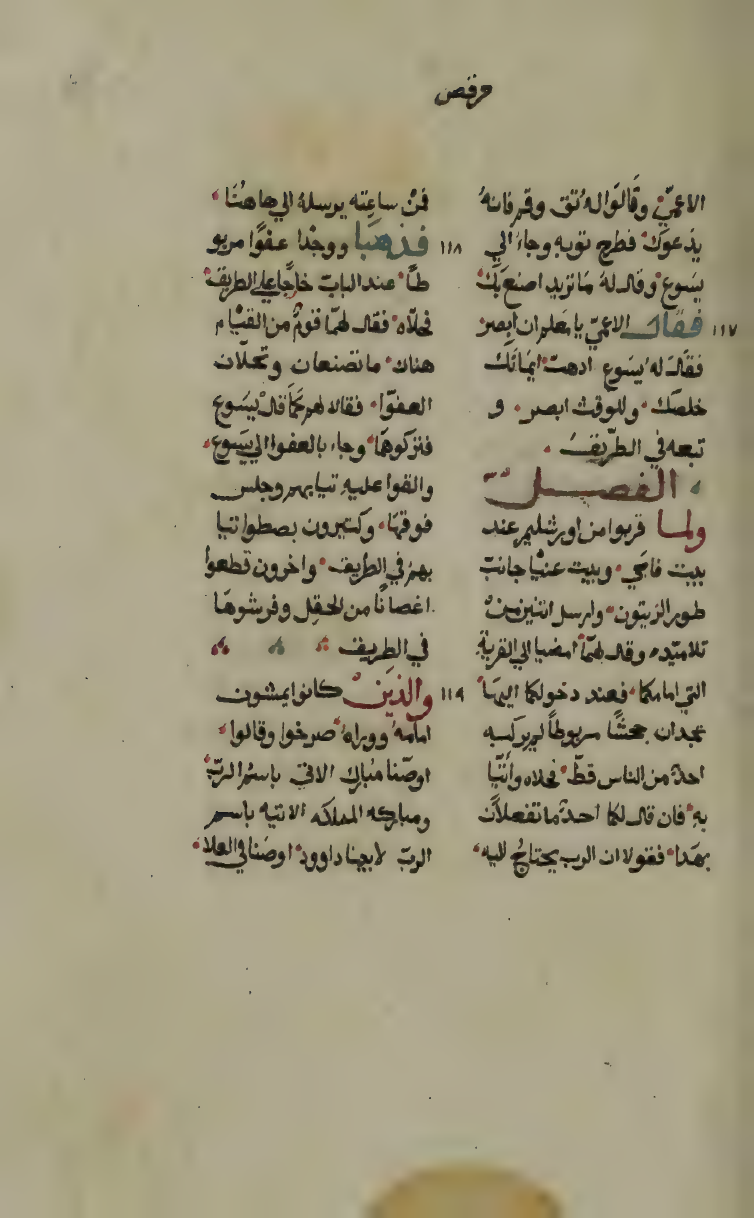 مرقص
الاعمي وقالوا له تق وقم فانه
يدعوك فطرح توبه وجاء الي
يسوع وقال له ما تريد اصنع بك
١١٧ فقال الاعمي يا معلم ان ابصر
فقال له يسوع ادهب ايمانك
خلصك وللوقت ابصر و
تبعه في الطريق
الفصل
ولما قربوا من اورشليم عند
بيت فاجي وبيت عنيا جانب
طور الزيتون وارسل اتنين من
تلاميده وقال لهما امضيا الي القرية
التي امامكما فعند دخولكما اليها
تجدان جحشا مربوطا لم يركبه
احد من الناس قط فحلاه وأتيا
به فان قال لكما احد ما تفعلان
بهدا فقولا ان الرب يحتاج اليه
فمن ساعته يرسله الي هاهنا
١١٨ فذهبا ووجدا عفوا مربو
طا عند الباب خارجا علي الطريق
فحلاه فقال لهما قوم من القيام
هناك ما تصنعان وتحلان
العفوا فقالا لهم كما قال يسوع
فتركوهما وجاء بالعفوا الي يسوع
والقوا عليه تيابهم وجلس
فوقها وكتيرون بصطوا تيا
بهم في الطريق واخرون قطعوا
اغصانا من الحقل وفرشوها
في الطريق
١١٩ والذين كانوا يمشون
امامه ووراه صرخوا وقالوا
اوصنا مبارك الاتي باسم الرب
ومباركه المملكه الاتيه باسم
الرب لابينا داوود اوصنا في العلا